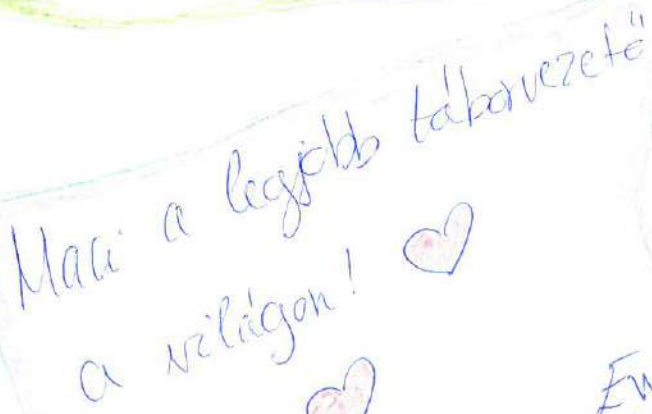 Maci a legjobb táborvezető
a világon!